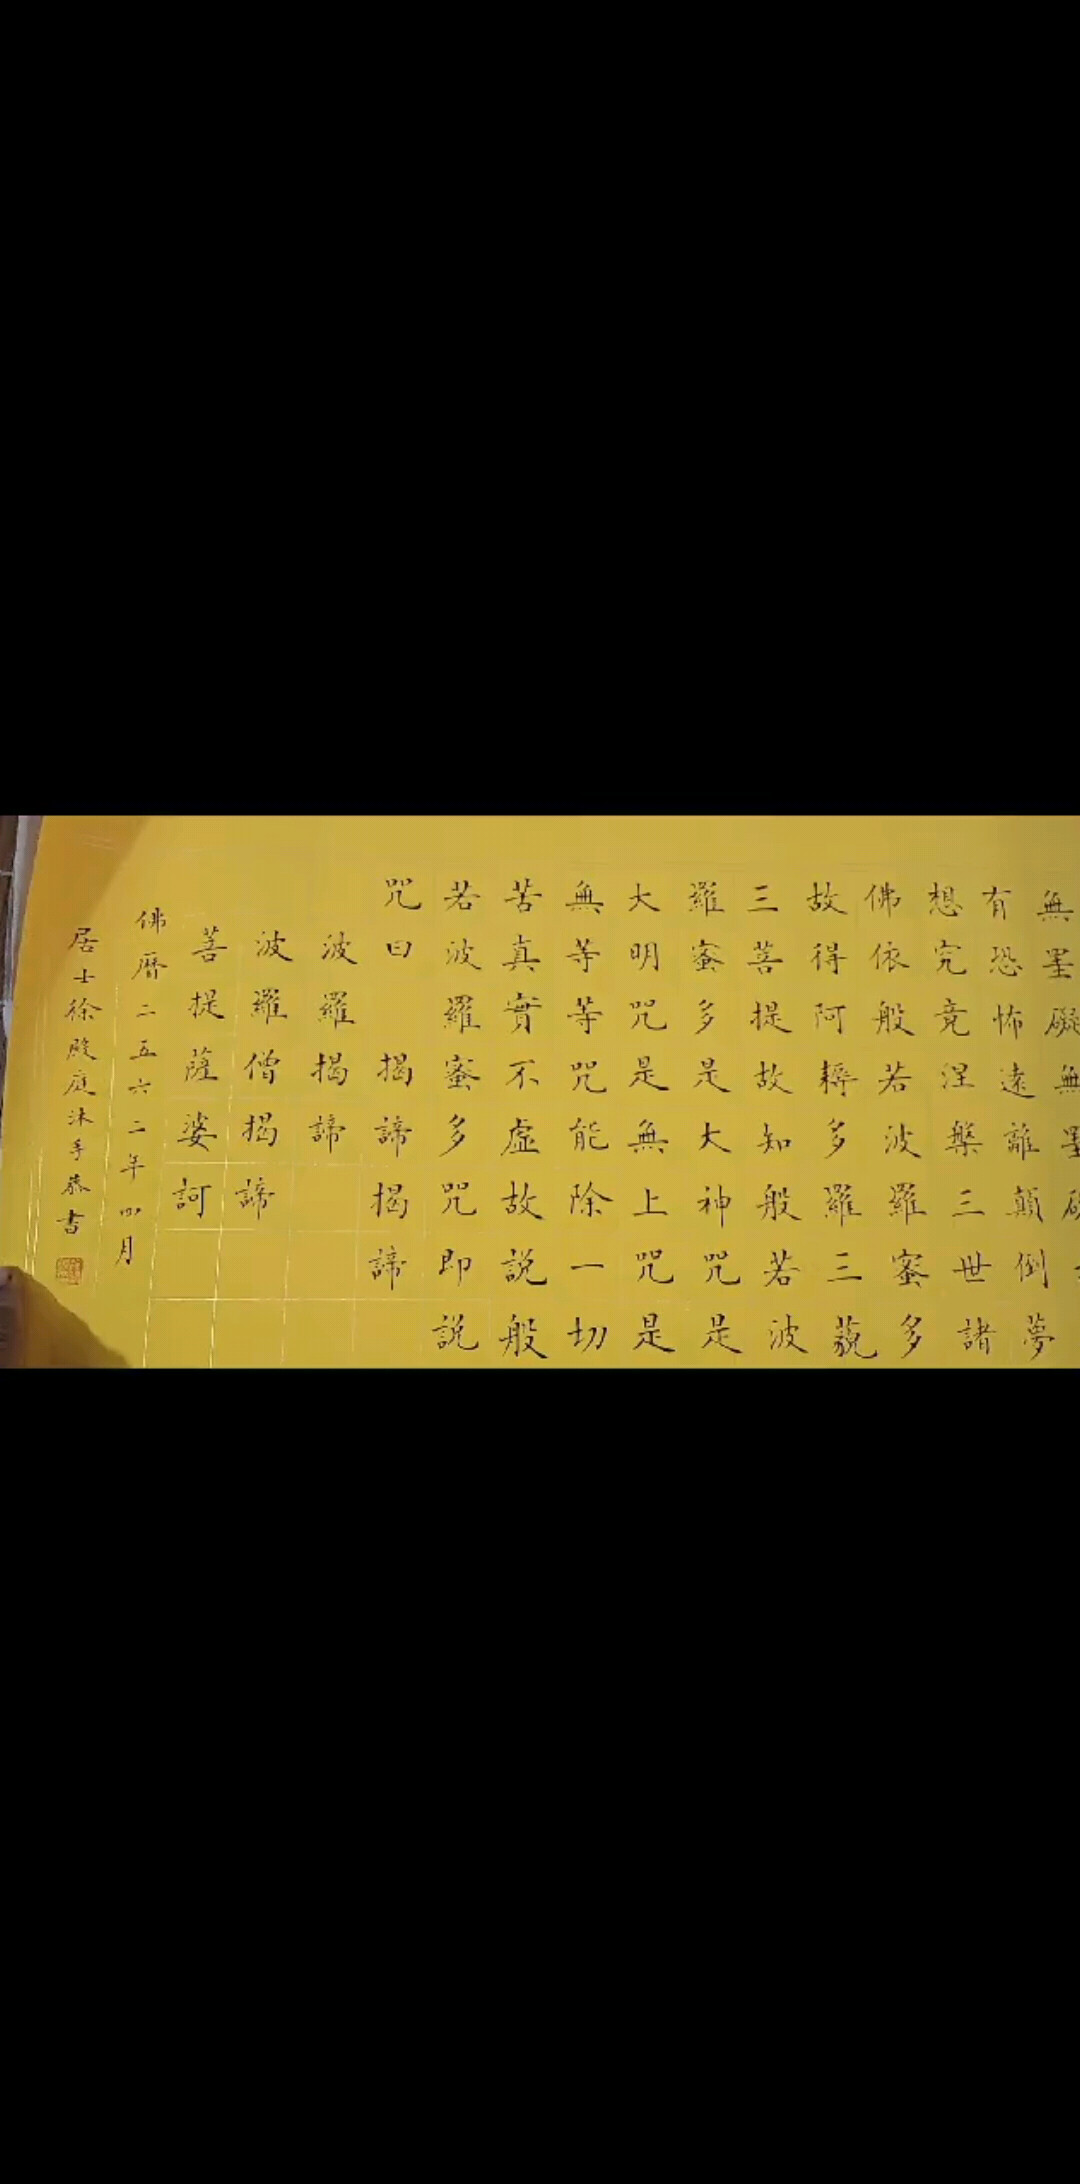 無罣礙無罣礙
有恐怖遠離顛倒夢
想究竟涅槃三世諸
佛依般若波羅蜜多
故得阿耨多羅三藐
三菩提故知般若波
羅蜜多是大神咒是
大明咒是無上咒是
無等等咒能除一切
苦真實不虛故說般
若波羅蜜多咒即說
咒曰
揭諦揭諦
波羅揭諦
波羅僧揭諦
菩提薩婆訶
佛曆二五六二年四月
居士徐殿庭沐手恭書